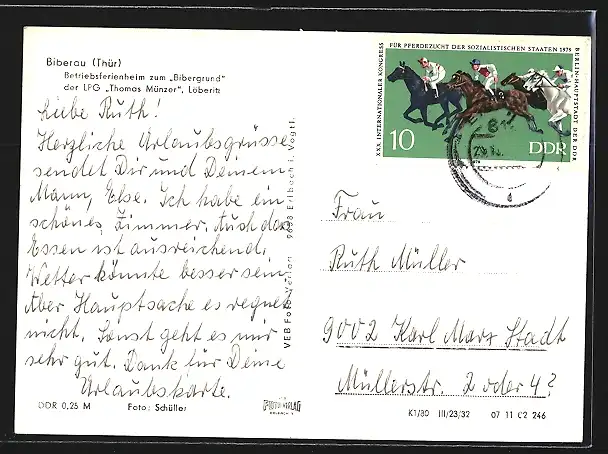 Biberau (Thür)
Betriebsferienheim zum „Bibergrund"
der LPG „Thomas Münzer", Löberitz
Liebe Ruth!
Herzliche Urlaubsgrüsse
sendet Dir und Deinem
Mann, Else. Ich habe ein
schönes Zimmer. Auch das
Essen ist ausreichend.
Wetter könnte besser sein
Aber Hauptsache es regnet
nicht. Sonst geht es mir
sehr gut. Dank für Deine
Urlaubskarte.
DDR 0,25 M
Foto: Schüller
VEB Foto-Verlag 9658 Erlbach i. Vogtl.
FOTO-VERLAG
ERLBACH
XXX. INTERNATIONALER KONGRESS
FÜR PFERDEZUCHT DER SOZIALISTISCHEN STAATEN 1979
BERLIN-HAUPTSTADT DER DDR
10
DDR
Frau
Ruth Müller
9002 Karl Marx Stadt
Müllerstr. 2 oder 4?
K1/80 III/23/32 07 11 02 246